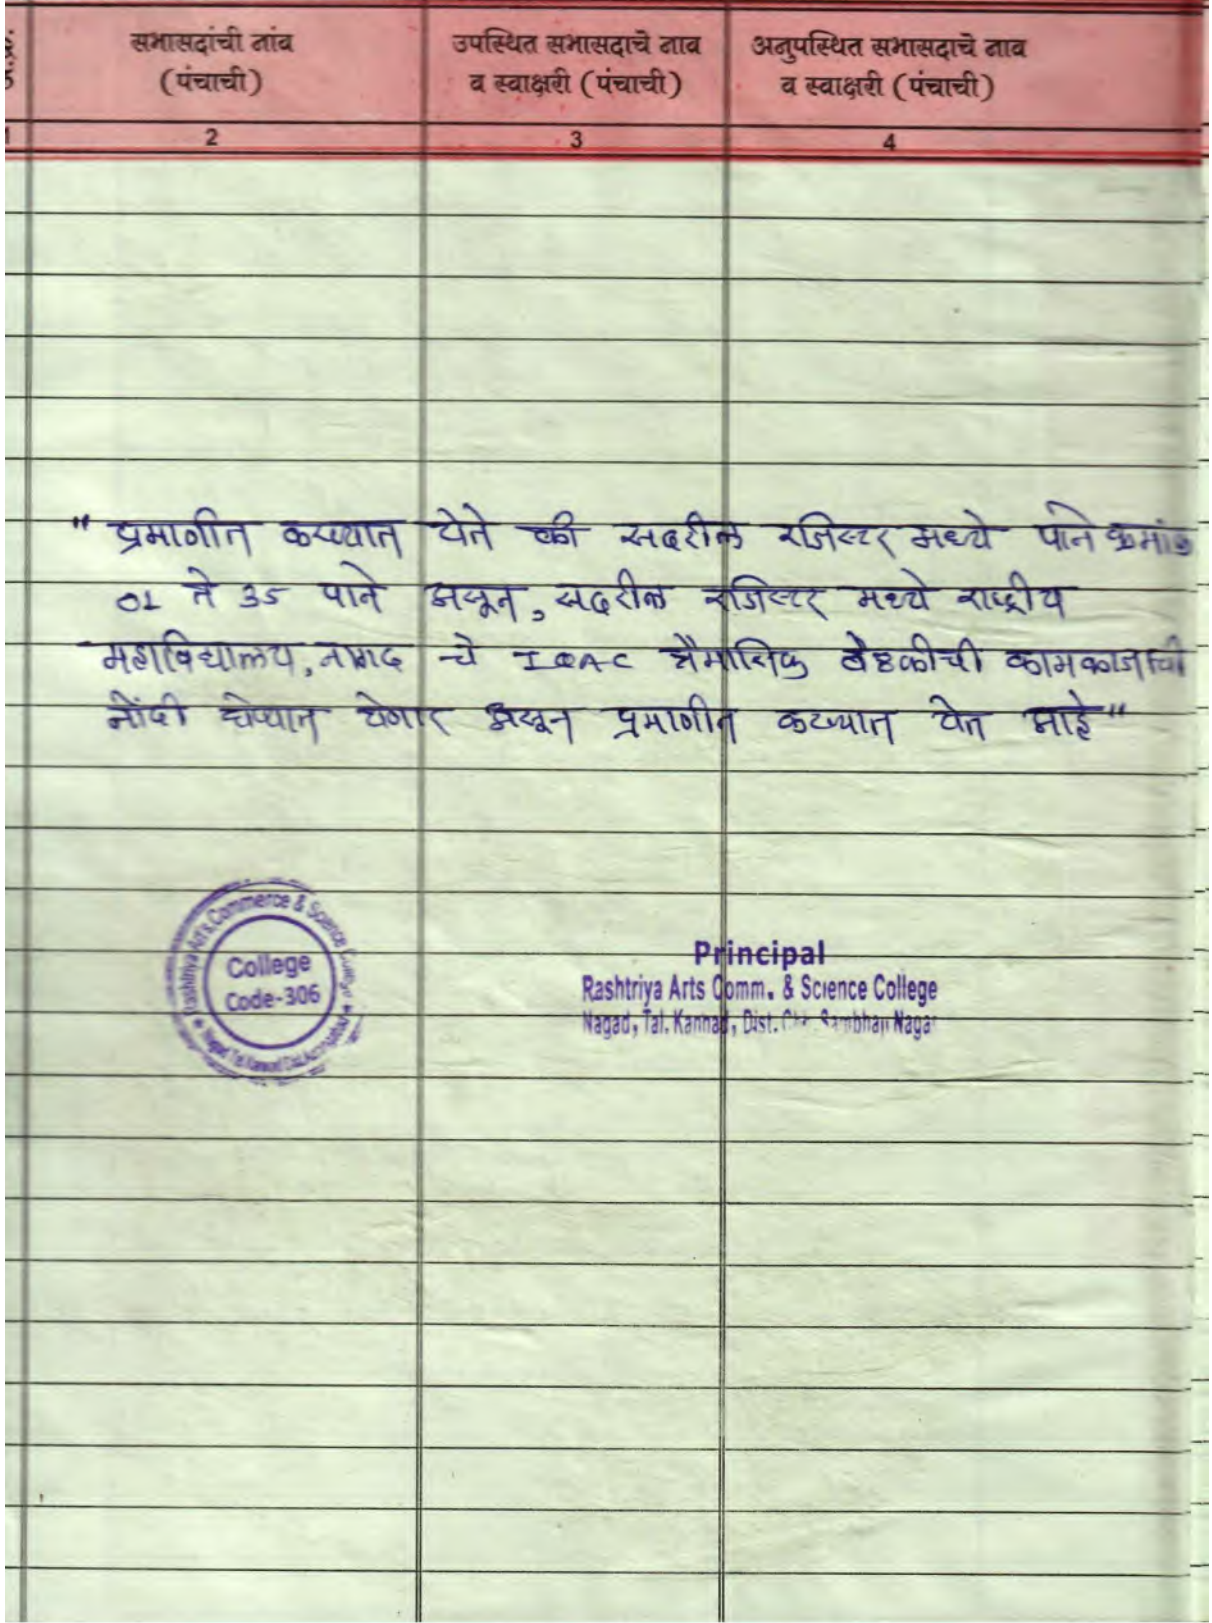 सभासदांची नांव
(पंचाची)
उपस्थित सभासदाचे नाव
व स्वाक्षरी (पंचाची)
अनुपस्थित सभासदाचे नाव
व स्वाक्षरी (पंचाची)
1 2 3 4
" प्रमाणीत करण्यात येते की सदरील रजिस्टर मध्ये पाने क्रमांक
01 ते 35 पाने असून, सदरील रजिस्टर मध्ये राष्ट्रीय
महाविद्यालय, नागद चे IQAC त्रैमासिक बैठकीची कामकाजाची
नोंदी घेण्यात येणार असून प्रमाणीत करण्यात येत आहे"
Rashtriya Art's, Commerce & Science College
College
Code-306
Nagad Tal. Kannad Dist. Aurangabad
Principal
Rashtriya Arts Comm. & Science College
Nagad, Tal. Kannad, Dist. Sambhaji Nagar